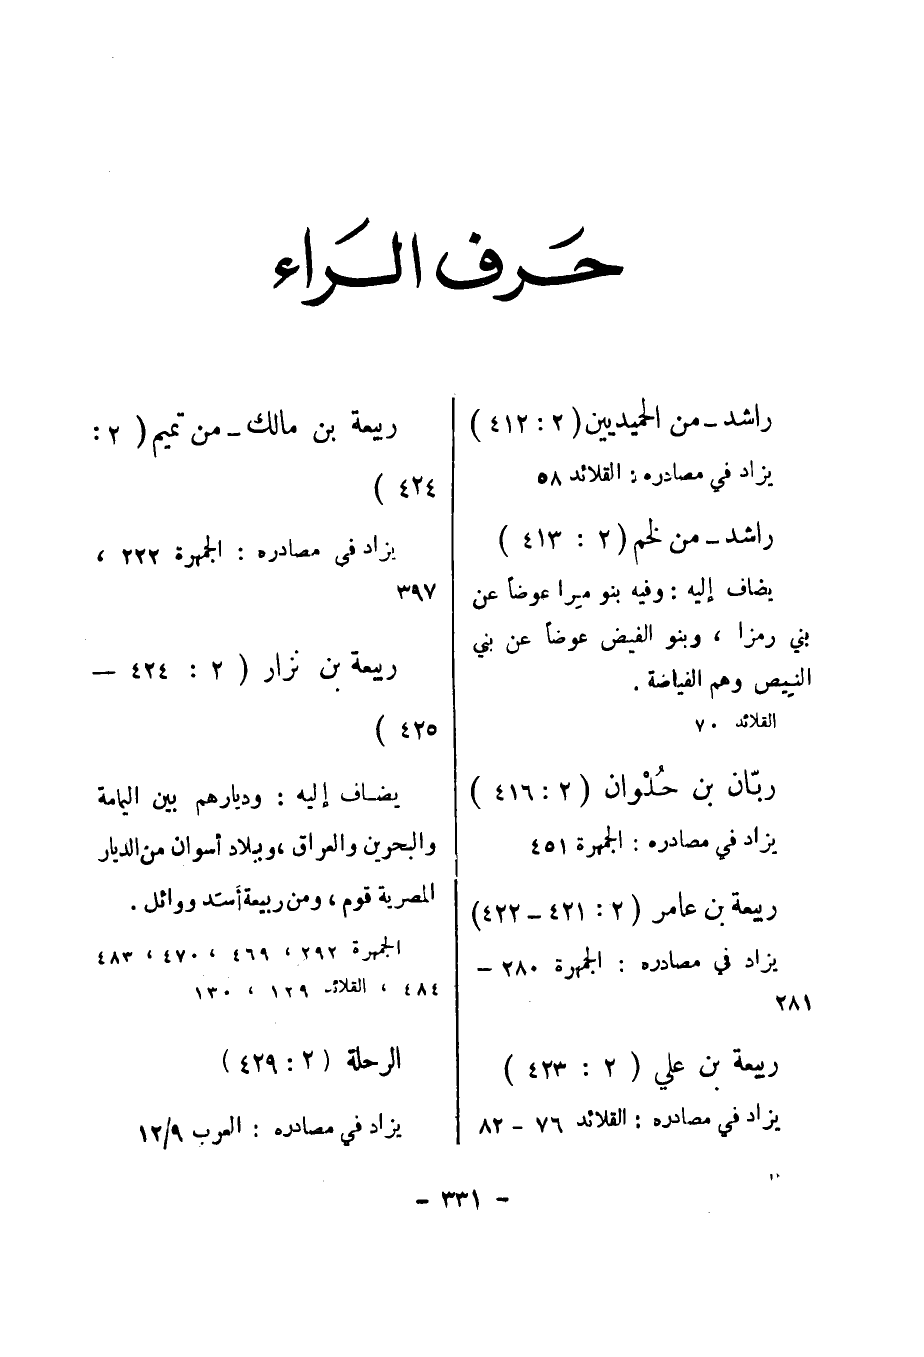 حَرف الرَاء
راشد ـ من الحميديين ( ٢ : ٤١٢ )
يزاد في مصادره : القلائد ٥٨
راشد ـ من لخم ( ٢ : ٤١٣ )
يضاف إليه : وفيه بنو ميرا عوضاً عن
بني رمزا ، وبنو الفيض عوضاً عن بني
النبيص وهم الفياضة .
القلائد ٧٠
ربّان بن حُلْوان ( ٢ : ٤١٦ )
يزاد في مصادره : الجمهرة ٤٥١
ربيعة بن عامر ( ٢ : ٤٢١ ـ ٤٢٢ )
يزاد في مصادره : الجمهرة ٢٨٠ ـ
٢٨١
ربيعة بن علي ( ٢ : ٤٢٣ )
يزاد في مصادره : القلائد ٧٦ ـ ٨٢
ربيعة بن مالك ـ من تميم ( ٢ :
٤٢٤ )
يزاد في مصادره : الجمهرة ٢٢٢ ،
٣٩٧
ربيعة بن نزار ( ٢ : ٤٢٤ ـ
٤٢٥ )
يضاف إليه : وديارهم بين اليمامة
والبحرين والعراق ، وببلاد أسوان من الديار
المصرية قوم ، ومن ربيعة أسد ووائل .
الجمهرة ٢٩٢ ، ٤٦٩ ، ٤٧٠ ، ٤٨٣
٤٨٤ ، القلائد ١٢٩ ، ١٣٠
الرحلة ( ٢ : ٤٢٩ )
يزاد في مصادره : العرب ١٢/٩
ـ ٣٣١ ـ